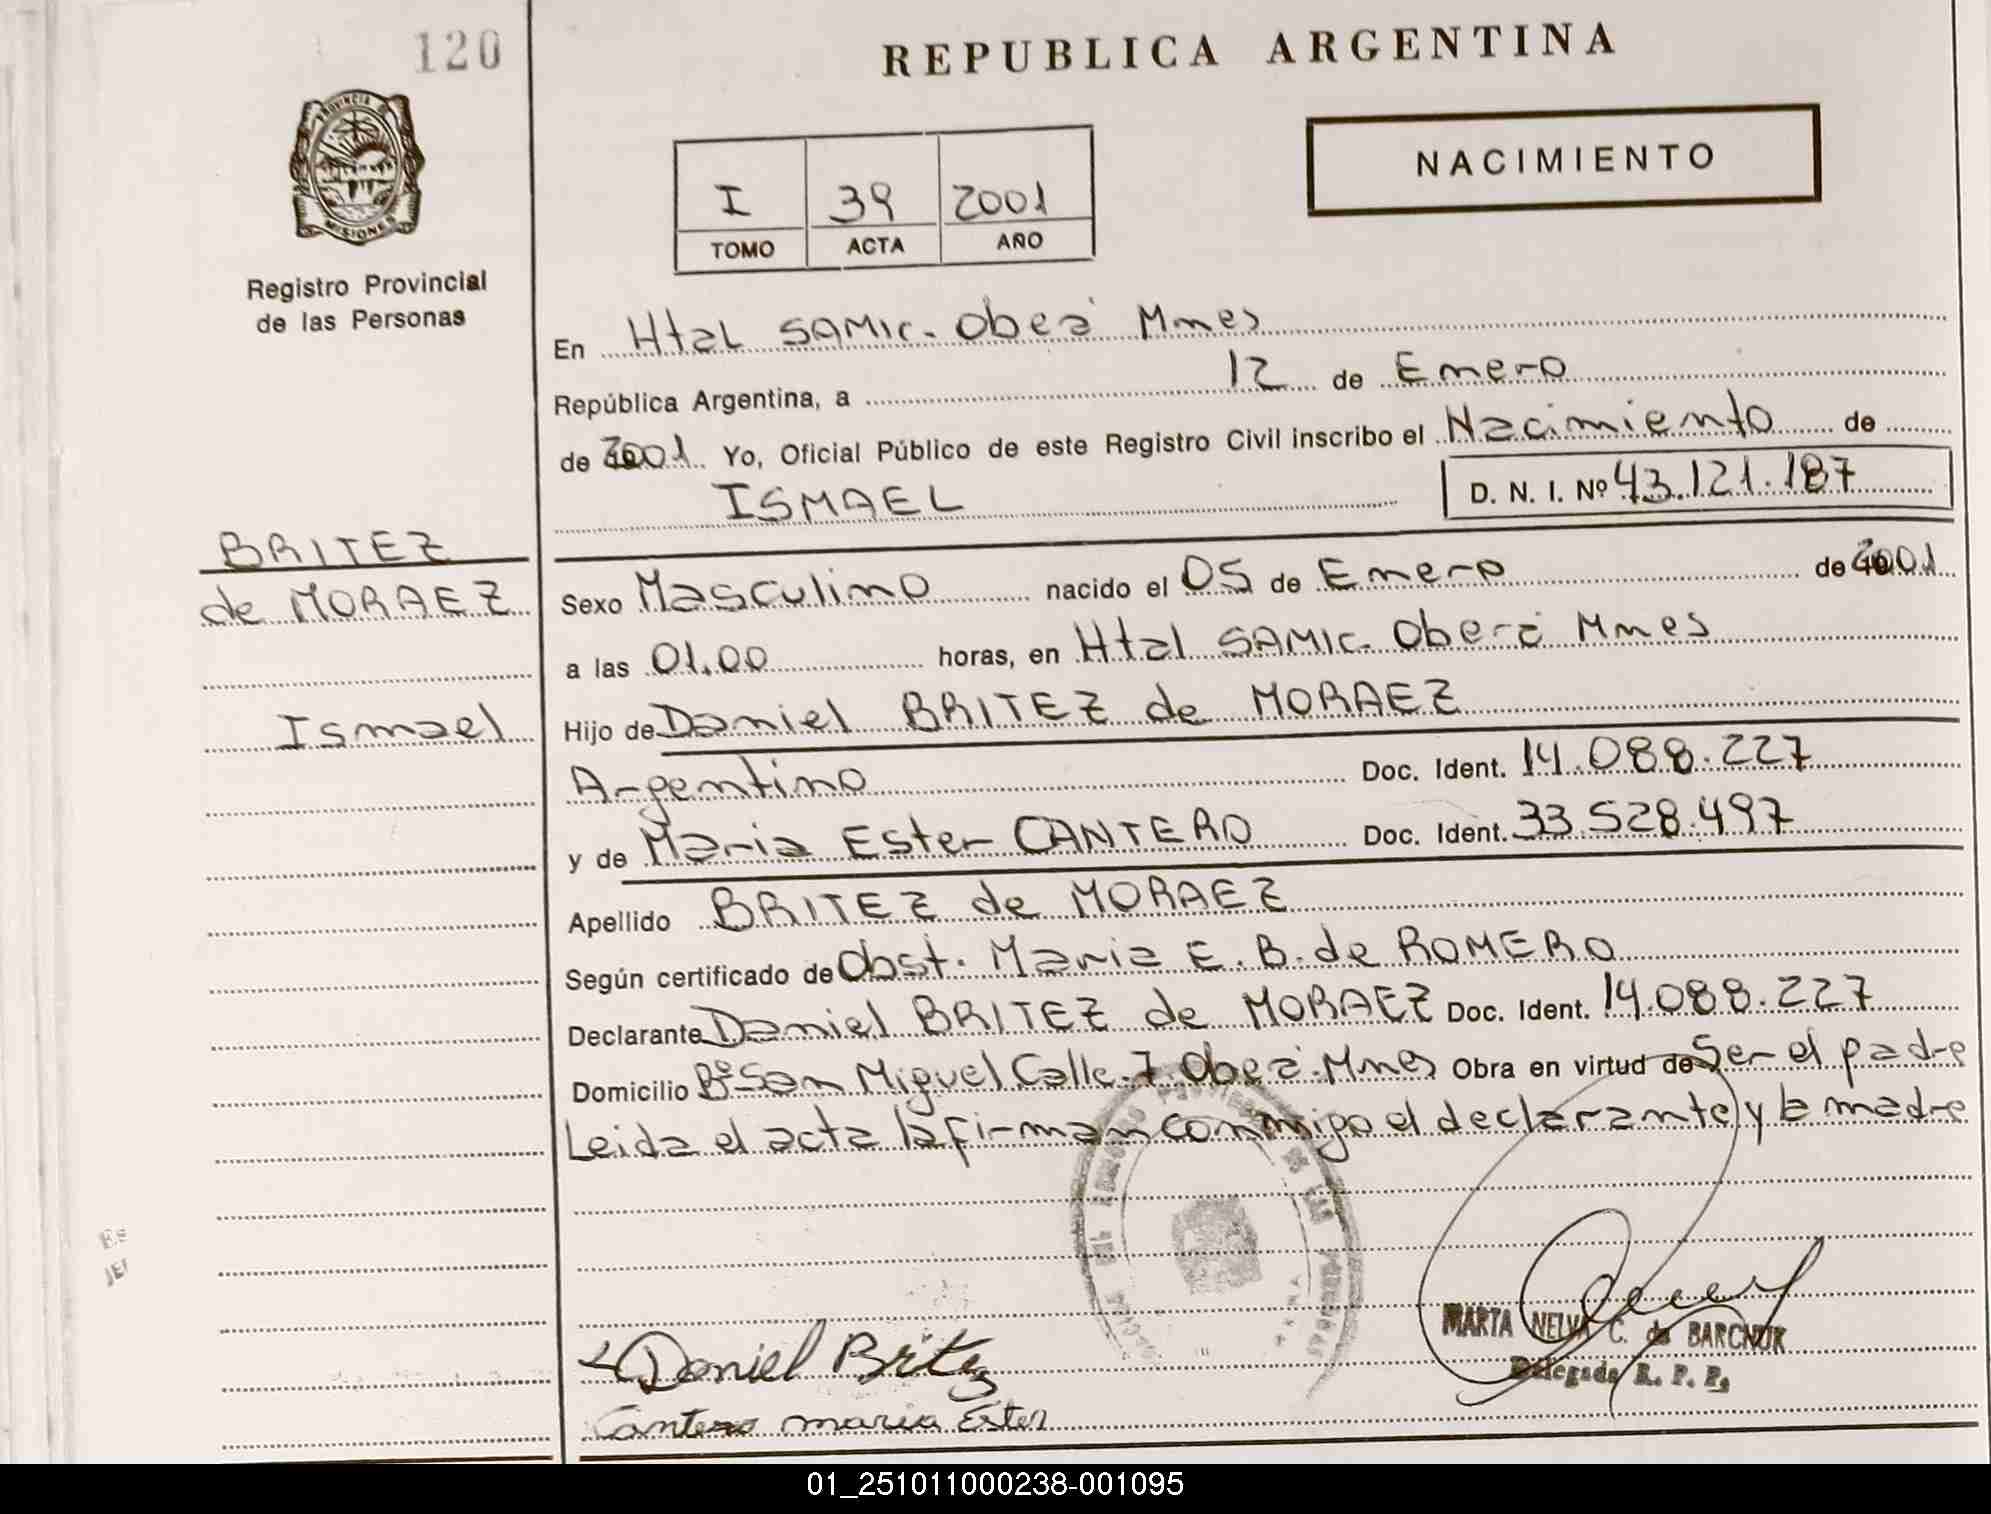 120
REPUBLICA ARGENTINA
NACIMIENTO
PROVINCIA DE
MISIONES
Registro Provincial
de las Personas
I 39 2001
TOMO ACTA AÑO
En Htal SAMIC. Obeá Mnes
República Argentina, a 12 de Enero
de 2001 Yo, Oficial Público de este Registro Civil inscribo el Nacimiento de
ISMAEL D. N. I. Nº 43.121.187
BRITEZ
de MORAEZ
Ismael
Sexo Masculino nacido el 05 de Enero de 2001
a las 01.00 horas, en Htal SAMIC. Oberá Mnes
Hijo de Daniel BRITEZ de MORAEZ
Argentino Doc. Ident. 14.088.227
y de Maria Ester CANTERO Doc. Ident. 33.528.497
Apellido BRITEZ de MORAEZ
Según certificado de Obst. Maria E. B. de ROMERO
Declarante Daniel BRITEZ de MORAEZ Doc. Ident. 14.088.227
Domicilio Bº San Miguel Calle 7 Obeá Mnes Obra en virtud de Ser el padre
Leida el acta la firman conmigo el declarante y la madre
Daniel Britez
Cantero maria Ester
MARTA NELVA C. de BARCHUK
Delegada R. P. P.
01_251011000238-001095